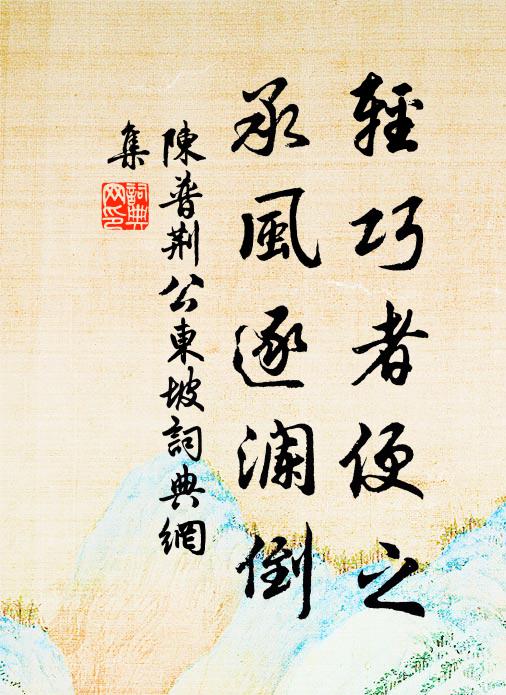 輕巧者便之
承風逐瀾倒
陳普荆公東坡詞典網
集
詞典
网印